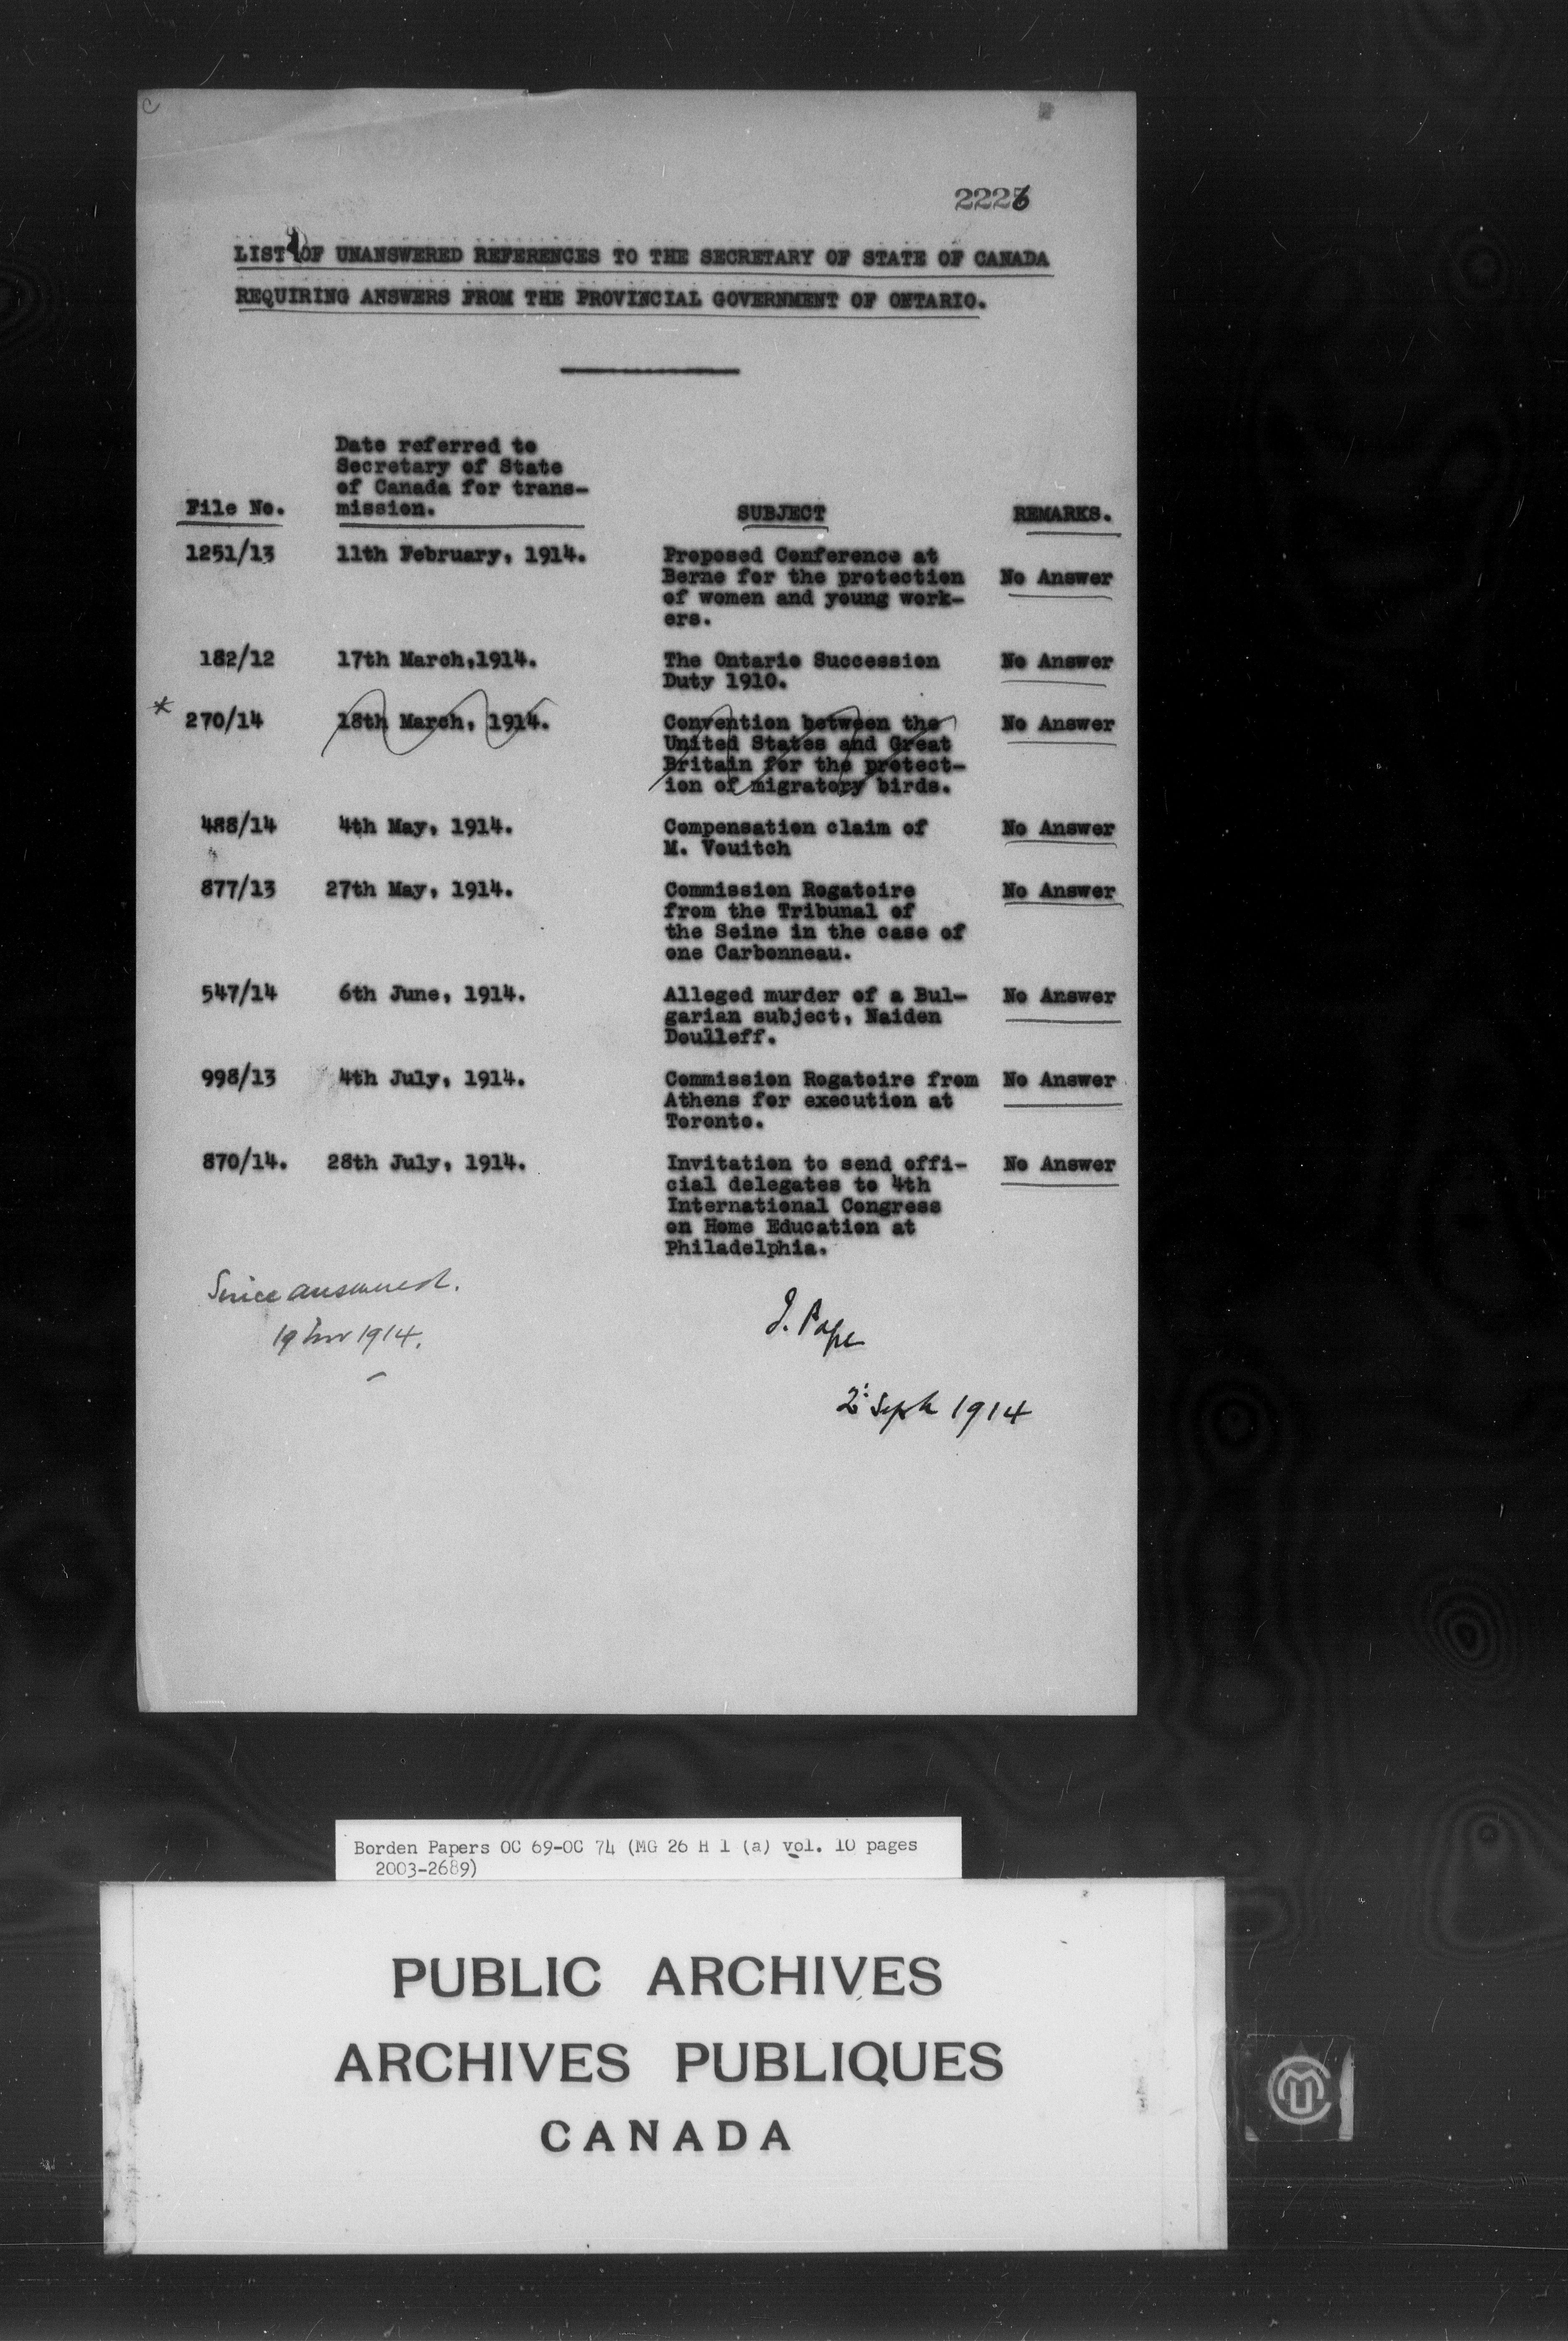 2226
LIST OF UNANSWERED REFERENCES TO THE SECRETARY OF STATE OF CANADA
REQUIRING ANSWERS FROM THE PROVINCIAL GOVERNMENT OF ONTARIO.
Date referred to
Secretary of State
of Canada for trans-
File No. mission. SUBJECT REMARKS.
1251/13 11th February, 1914. Proposed Conference at
Berne for the protection No Answer
of women and young work-
ers.
182/12 17th March,1914. The Ontario Succession No Answer
Duty 1910.
* 270/14 18th March, 1914. Convention between the No Answer
United States and Great
Britain for the protect-
ion of migratory birds.
488/14 4th May, 1914. Compensation claim of No Answer
M. Vouitch
877/13 27th May, 1914. Commission Rogatoire No Answer
from the Tribunal of
the Seine in the case of
one Carbonneau.
547/14 6th June, 1914. Alleged murder of a Bul- No Answer
garian subject, Naiden
Doulleff.
998/13 4th July, 1914. Commission Rogatoire from No Answer
Athens for execution at
Toronto.
870/14. 28th July, 1914. Invitation to send offi- No Answer
cial delegates to 4th
International Congress
on Home Education at
Philadelphia.
Since answered.
19 1914.
J. Pope
2 Sept 1914
Borden Papers OC 69-OC 74 (MG 26 H 1 (a) vol. 10 pages
2003-2689)
PUBLIC ARCHIVES
ARCHIVES PUBLIQUES
CANADA